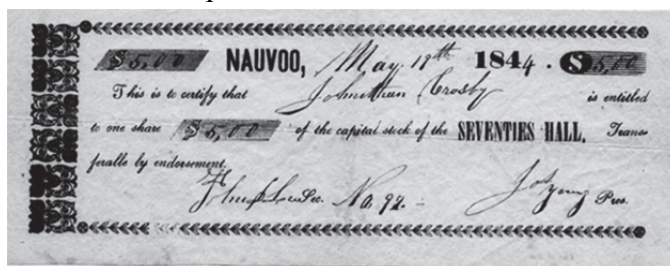 $5,00 NAUVOO, May 18th 1844. $5,00
This is to certify that Johnathan Crosby is entitled
to one share $5,00 of the capital stock of the SEVENTIES HALL, Trans-
ferable by endorsement.
John Sec. No, 92. Young Pres.